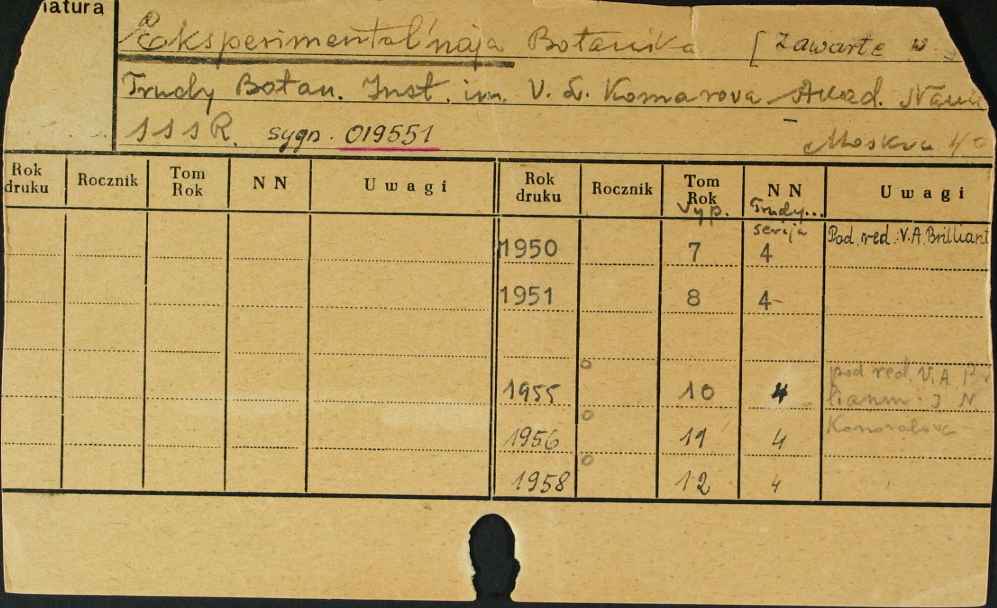 natura
Eksperimental'naja Botanika [Zawarte w
Trudy Botan. Inst. im. V. L. Komarova Akad. Nauk
SSSR. sygn. 019551 Moskva
Rok druku Rocznik Tom Rok N N Uwagi Rok druku Rocznik Tom Rok N N Uwagi
Vyp. Trudy... serija
1950 7 4 Pod red. V.A. Brilliant
1951 8 4
1955 10 4 pod red. V.A.
1956 11 4
1958 12 4